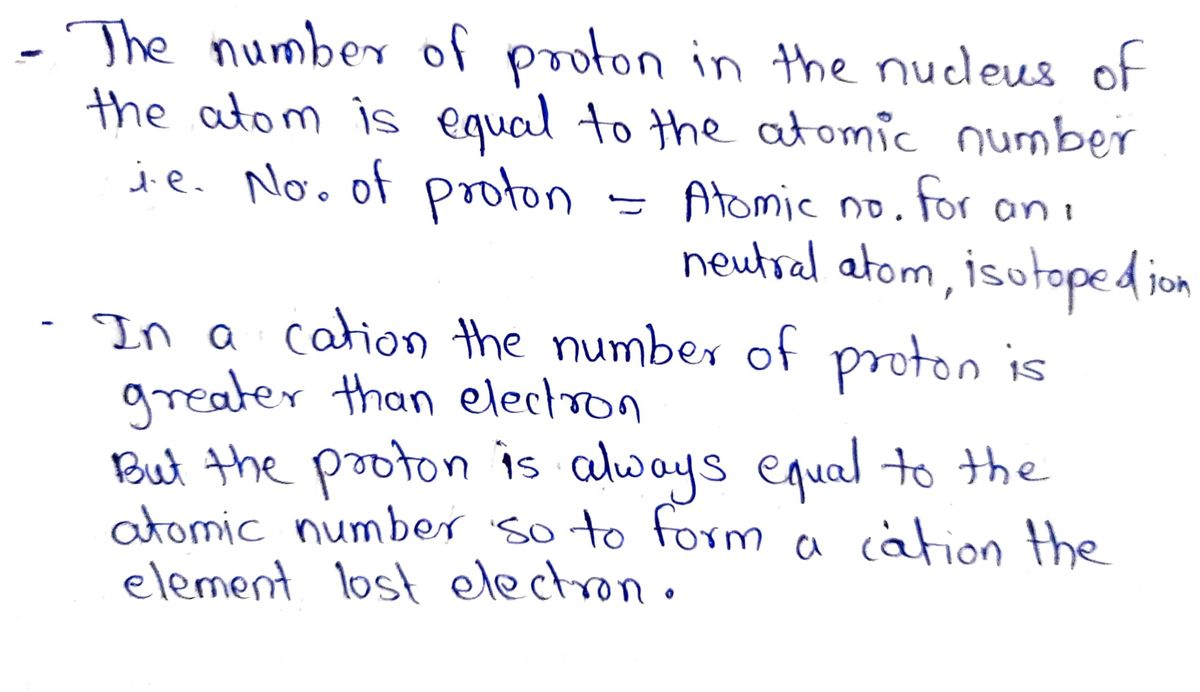 - The number of proton in the nucleus of
the atom is equal to the atomic number
i.e. No. of proton = Atomic no. for an
neutral atom, isotoped ion
- In a cation the number of proton is
greater than electron
But the proton is always equal to the
atomic number so to form a cation the
element lost electron.